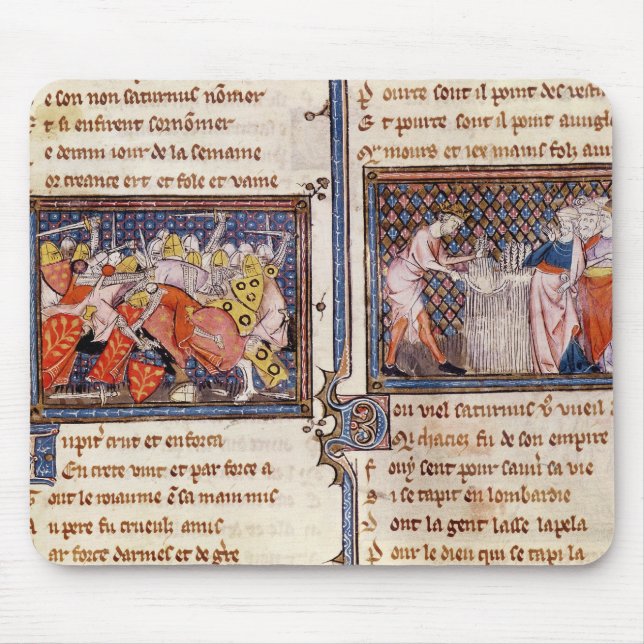 e son non saturnus nõmer
t si enfirent sornõmer
e derrain iour de la semaine
or creance ert et fole et vaine
Iupit' crut et enforca
En crete vint et par force a
out le roiaume ẽ sa main mis
u pere fu crueulz amis
ar force darmes et de
Pource sont il point des
Et pource sont il point
mours et iex mains folz
ou viel saturnus vueil
chaciez fu de son empire
fouy sent pour sauu' sa vie
Si se tapit en lombardie
Dont la gent lasse lapela
Pour le dieu qui se tapi la